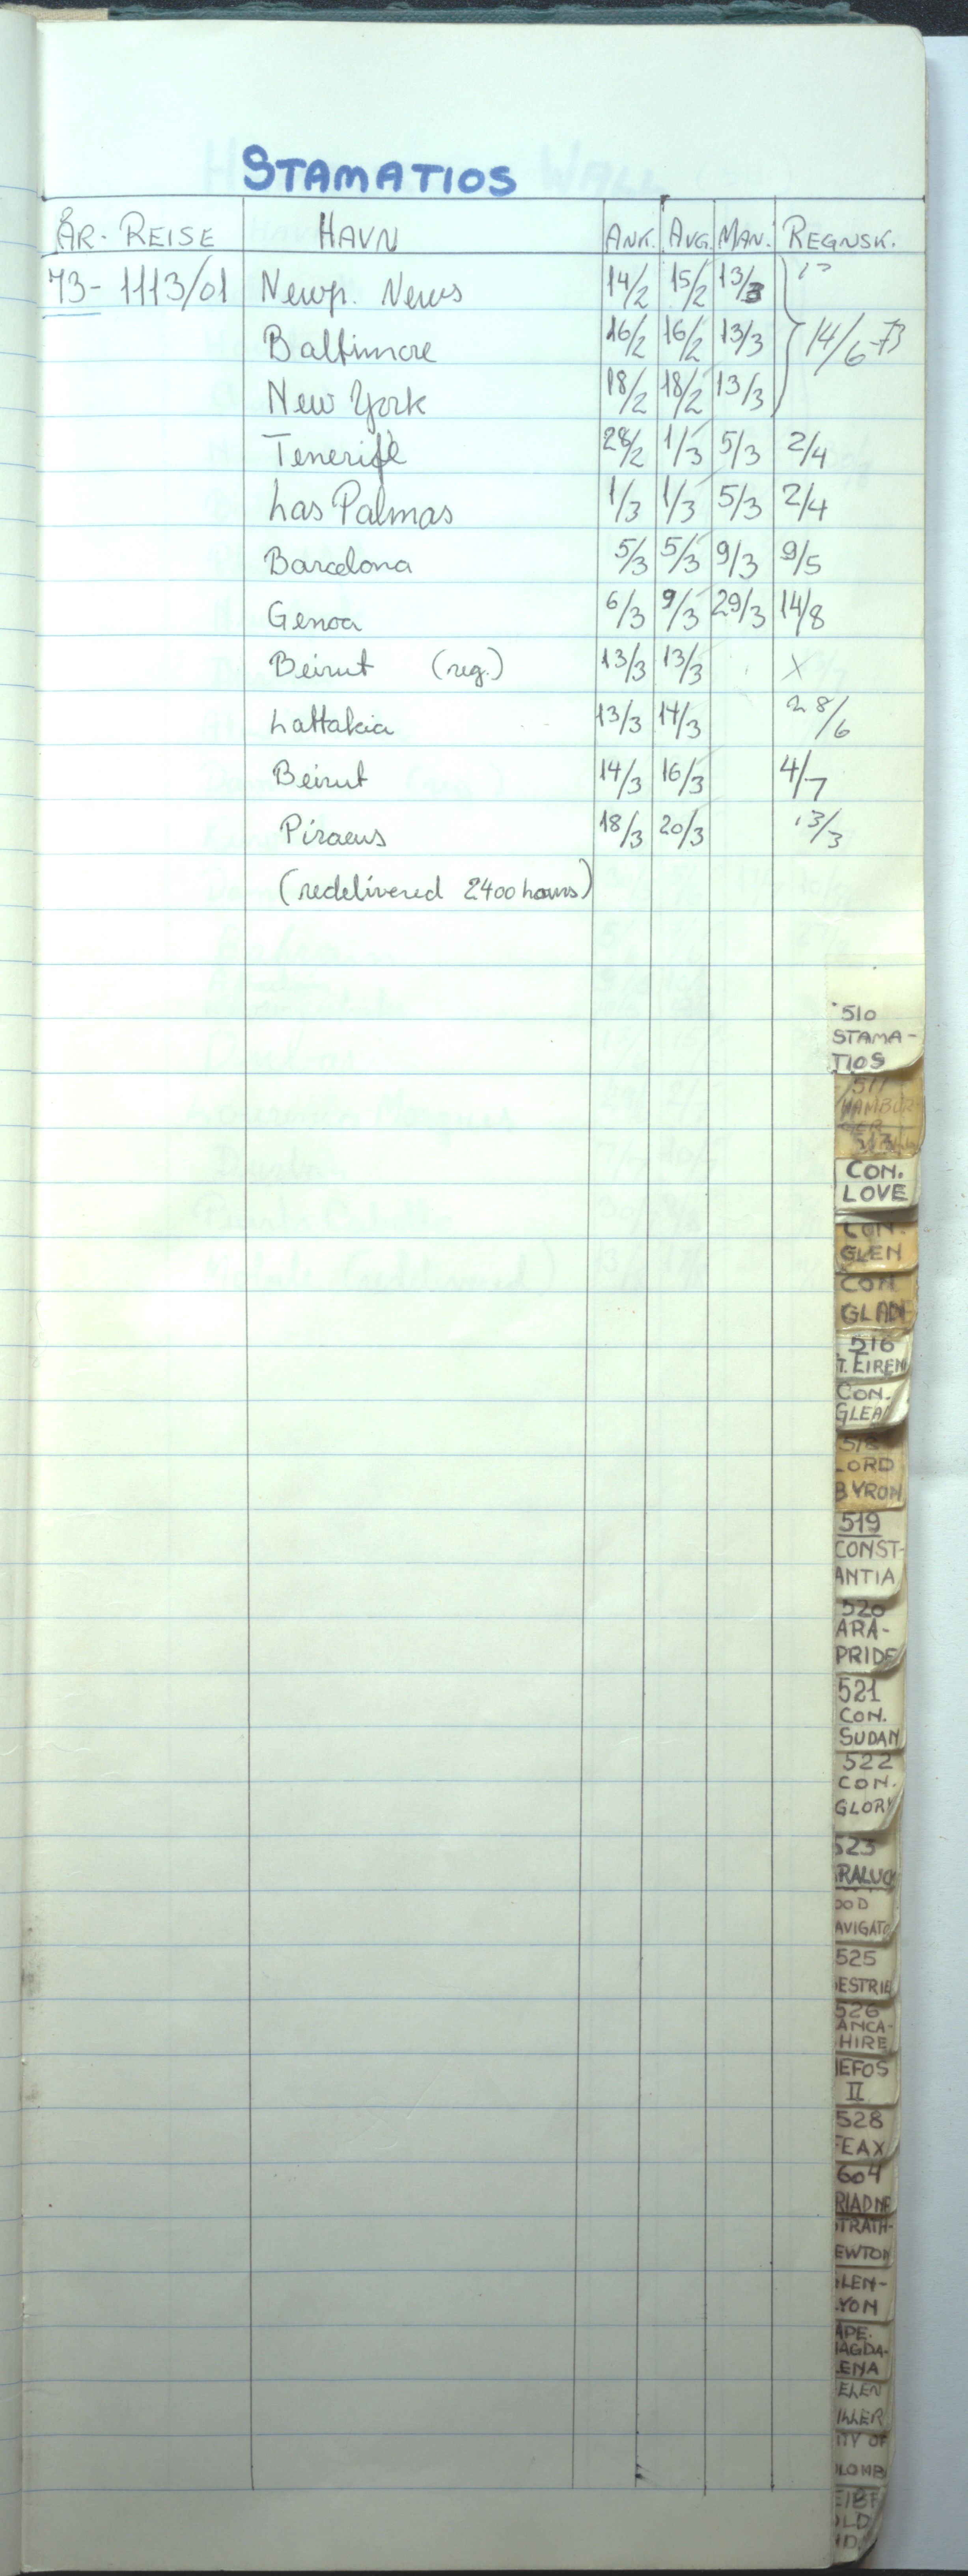 STAMATIOS
ÅR- REISE HAVN ANK. AVG. MAN. REGNSK.
73- 1113/01 Newp. News 14/2 15/2 13/3
Baltimore 16/2 16/2 13/3 14/6-73
New York 18/2 18/2 13/3
Tenerife 28/2 1/3 5/3 2/4
Las Palmas 1/3 1/3 5/3 2/4
Barcelona 5/3 5/3 9/3 9/5
Genoa 6/3 9/3 29/3 14/8
Beirut (reg.) 13/3 13/3 X
Lattakia 13/3 14/3 28/6
Beirut 14/3 16/3 4/7
Piraeus 18/3 20/3 13/3
(redelivered 2400 hours)
510
STAMA-
TIOS
511
HAMBUR-
GER
CON.
LOVE
CON.
GLEN
CON
GLADE
516
T. EIREN
CON.
GLEA
518
LORD
BYRON
519
CONST-
ANTIA
520
ARA-
PRIDE
521
CON.
SUDAN
522
CON.
GLORY
523
RALUCK
OOD
AVIGATO
525
ESTRIE
526
ANCA-
HIRE
NEFOS
II
528
FEAX
604
RIADNE
STRATH-
EWTON
GLEN-
LYON
APE.
MAGDA-
LENA
ELEN
ILLER
ITY OF
OLOMB
EIBE
OLD